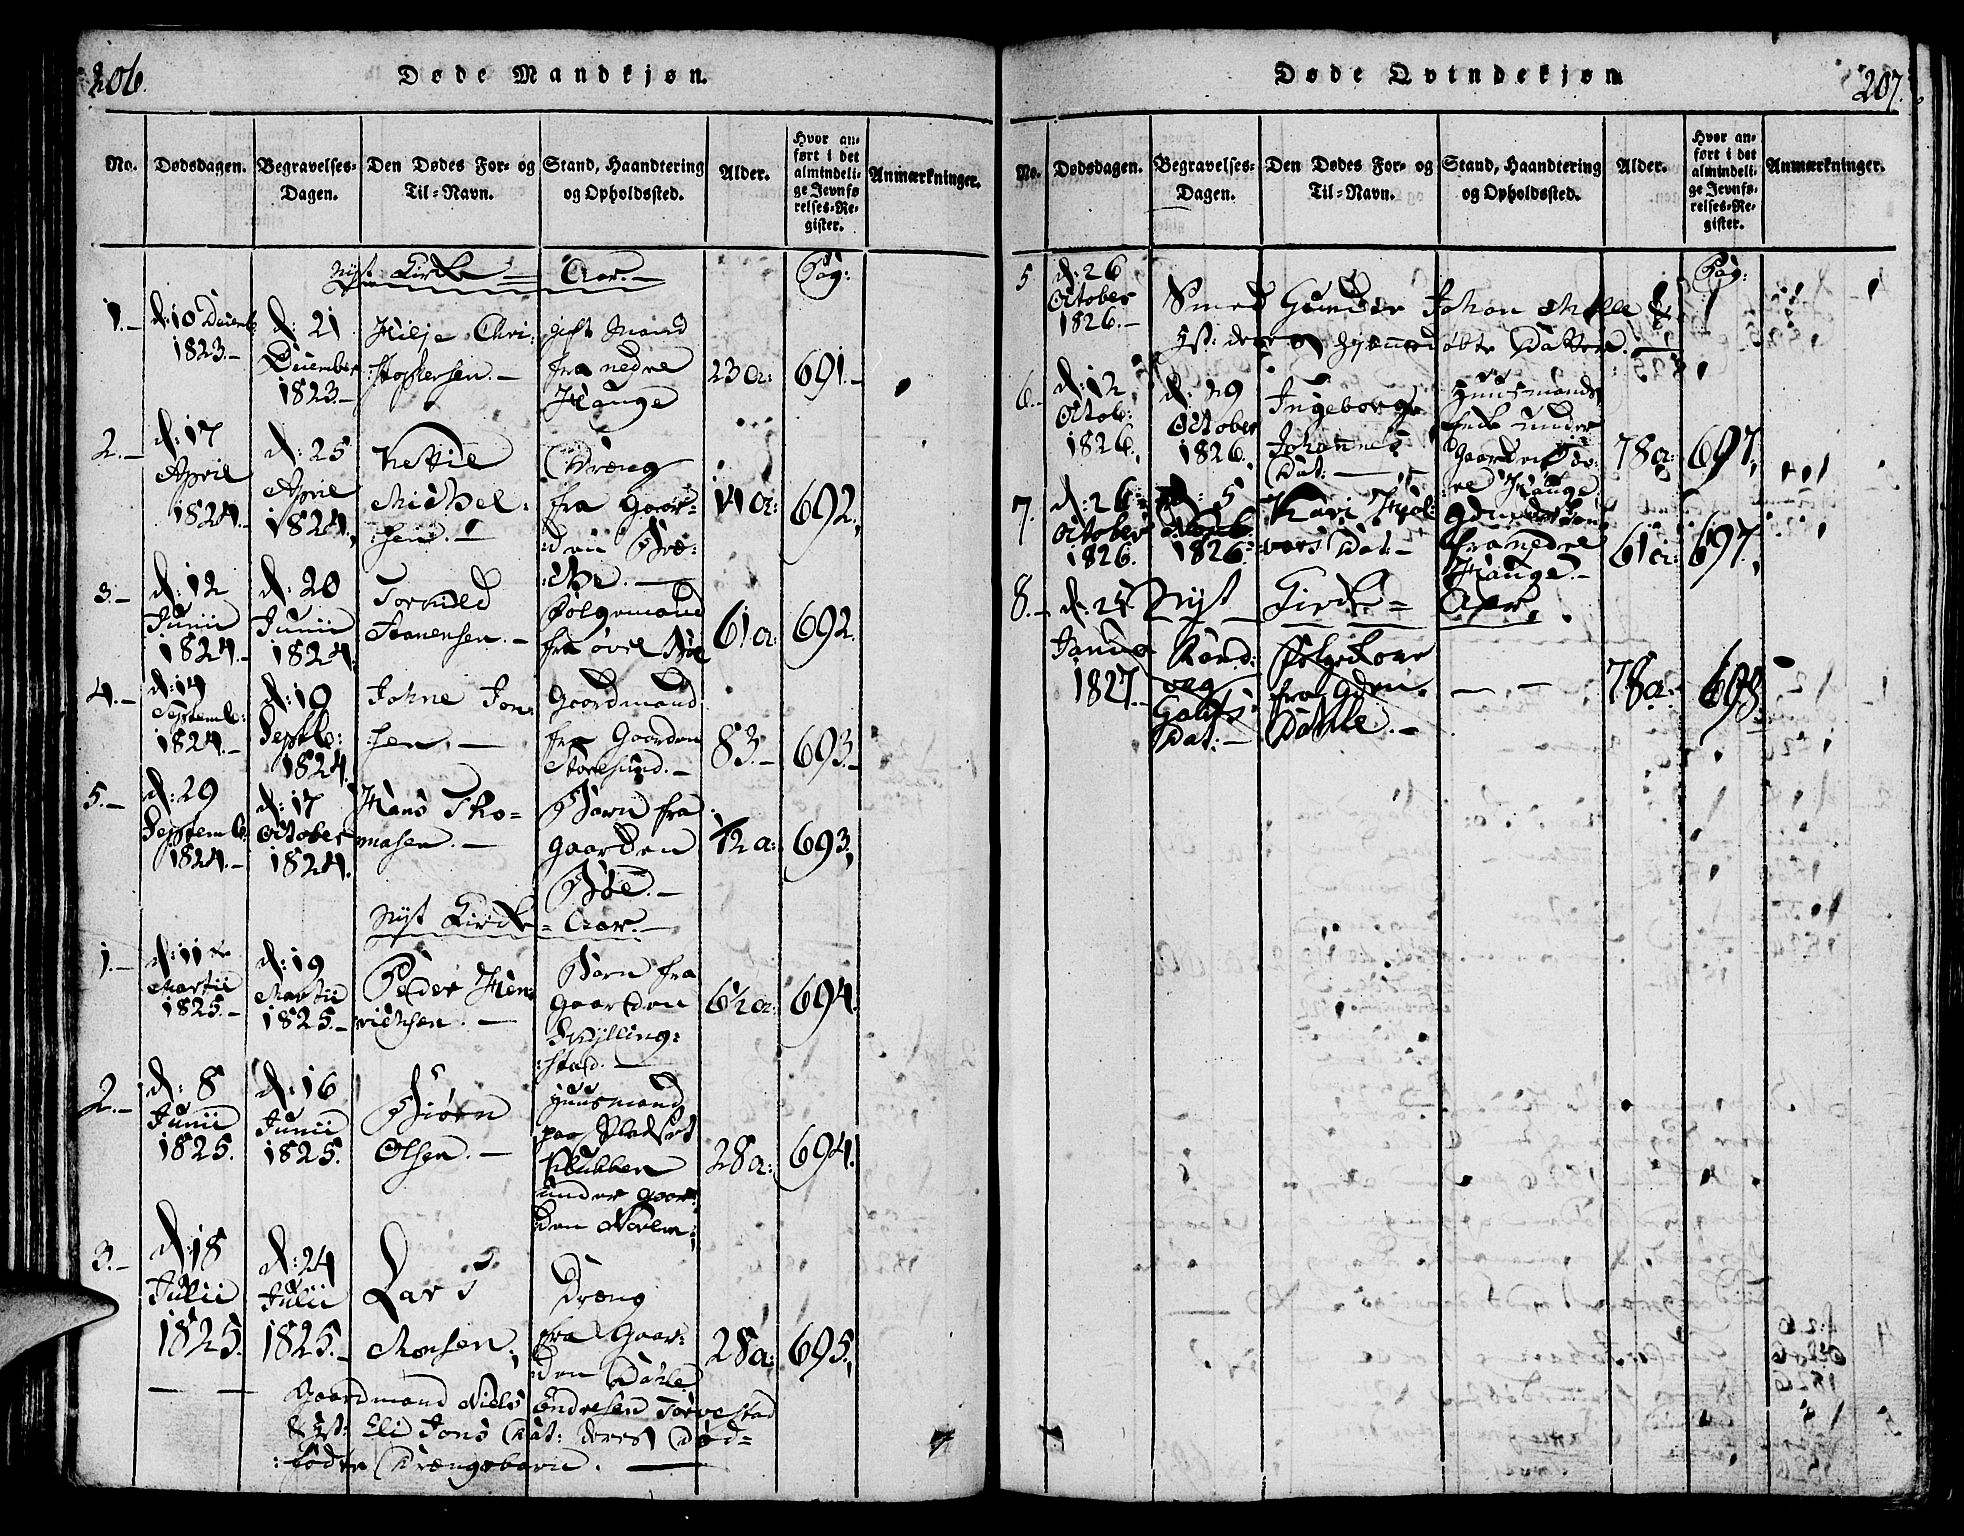 206.
Døde Mandkjøn.
No.
Dødsdagen.
Begravelses-
Dagen.
Den Dødes For- og
Til-Navn.
Stand, Haandtering
og Opholdssted.
Alder.
Hvor an-
ført i det
almindeli-
ge Jevnfø-
relses-Re-
gister.
Anmærkninger.
Nyt Kirke = Aar. —
Pag:
1. —
d: 10 Decemb
1823. —
d: 21
December
1823. —
Hilje Chri:
stophersen. —
gift Mand
fra nedre
Hauge
23 a:
691. —
2. —
d: 17
April
1824. —
d: 25
April
1824.
Kettil
Michel:
sen. —
Dreng
fra Gaar=
den
11 a:
692,
3. —
d: 12
Junii
1824. —
d: 20
Junii
1824.
Tormod
Folgemand
fra øvre
61 a:
692.
4. —
d: 14
Septemb:
1824. —
d: 19
Septb:
1824.
Johne Jon:
sen. —
Gaardmand
fra Gaarden
Storesund. —
83. —
693. —
5. —
d: 29
Septemb:
1824. —
d: 17
October
1824.
Hans Tho=
masen. —
Barn fra
Gaarden
Bøe. —
1/2 a:
693,
Nyt Kirke = Aar. —
1. —
d: 11te
Martii
1825. —
d: 19
Martii
1825. —
Peder Hen:
richsen. —
Barn fra
Gaarden
Skylling:
stad. —
6 1/2 a:
694.
2. —
d: 8
Junii
1825.
d: 16
Junii
1825.
Biørn
Olsen. —
Huusmand
paa Pladset
Klubben
under Gaar:
den
28 a:
694.
3. —
d: 18
Julii
1825.
d: 24
Julii
1825. —
Lars
Monsen,
Dreng
fra Gaar:
den Dahle
28 a:
695,
— — Gaardmand Niels Endresen Torvestad
& Hst: Eli Jons Dat: deres Død=
:fødte Drengebarn. —
207.
Døde Qvindekjøn
No.
Dødsdagen.
Begravelses-
Dagen.
Den Dødes For- og
Til-Navn.
Stand, Haandtering
og Opholdssted.
Alder.
Hvor an-
ført i det
almindeli-
ge Jevnfø-
relses-Re-
gister.
Anmærkninger.
Pag:
5
d: 26
October
1826. —
Smed Gunder Johan &
Hst: deres hjemmedøbte Datter. —
6. —
d: 12
Octob:
1826.
d: 29
October
1826.
Ingeborg
Johannes
Dat: —
Huusmands
Enke under
Gaarden
Hauge
78 a:
697,
7.
d: 26
October
1826.
5
1826.
Kari
Dat: —
fra nedre
Hauge. —
61 a:
697,
Nyt Kirke = Aar.
8. —
d: 25
Janua
1827. —
Rond:
veg
Dat: —
Folgekone
fra Gden.
Dahle. —
— —
78 a:
698.